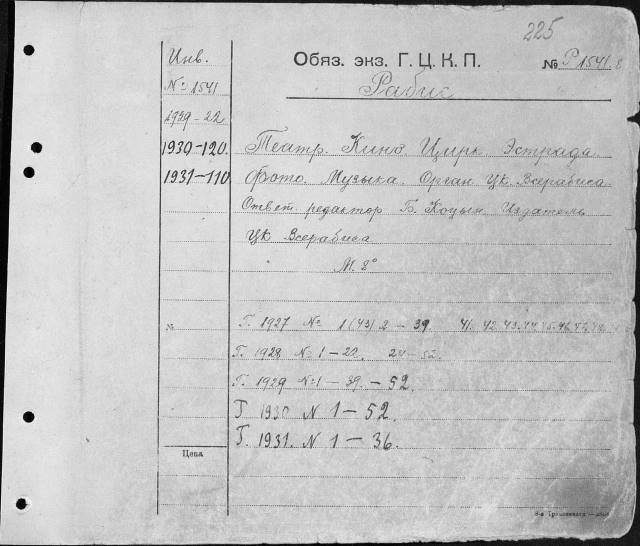 225
Инв.
№ 1541
Обяз. экз. Г. Ц. К. П.
№ Р 1541
Рабис
1929-22
1930-120. Театр. Кино. Цирк. Эстрада.
1931-110 Фото. Музыка. Орган Цк. Всерабиса
Ответ. редактор Б. Коцын. Издатель
ЦК Всерабиса
М. 8°
№ Г. 1927 № 1 (43) 2 - 39. 41. 42. 43. 44. 45. 46. 47.
Г. 1928 № 1 - 22. 24 - 52.
Г. 1929 № 1 - 39. - 52.
Г 1930 N 1 - 52.
Г. 1931. N 1 - 36.
Цена